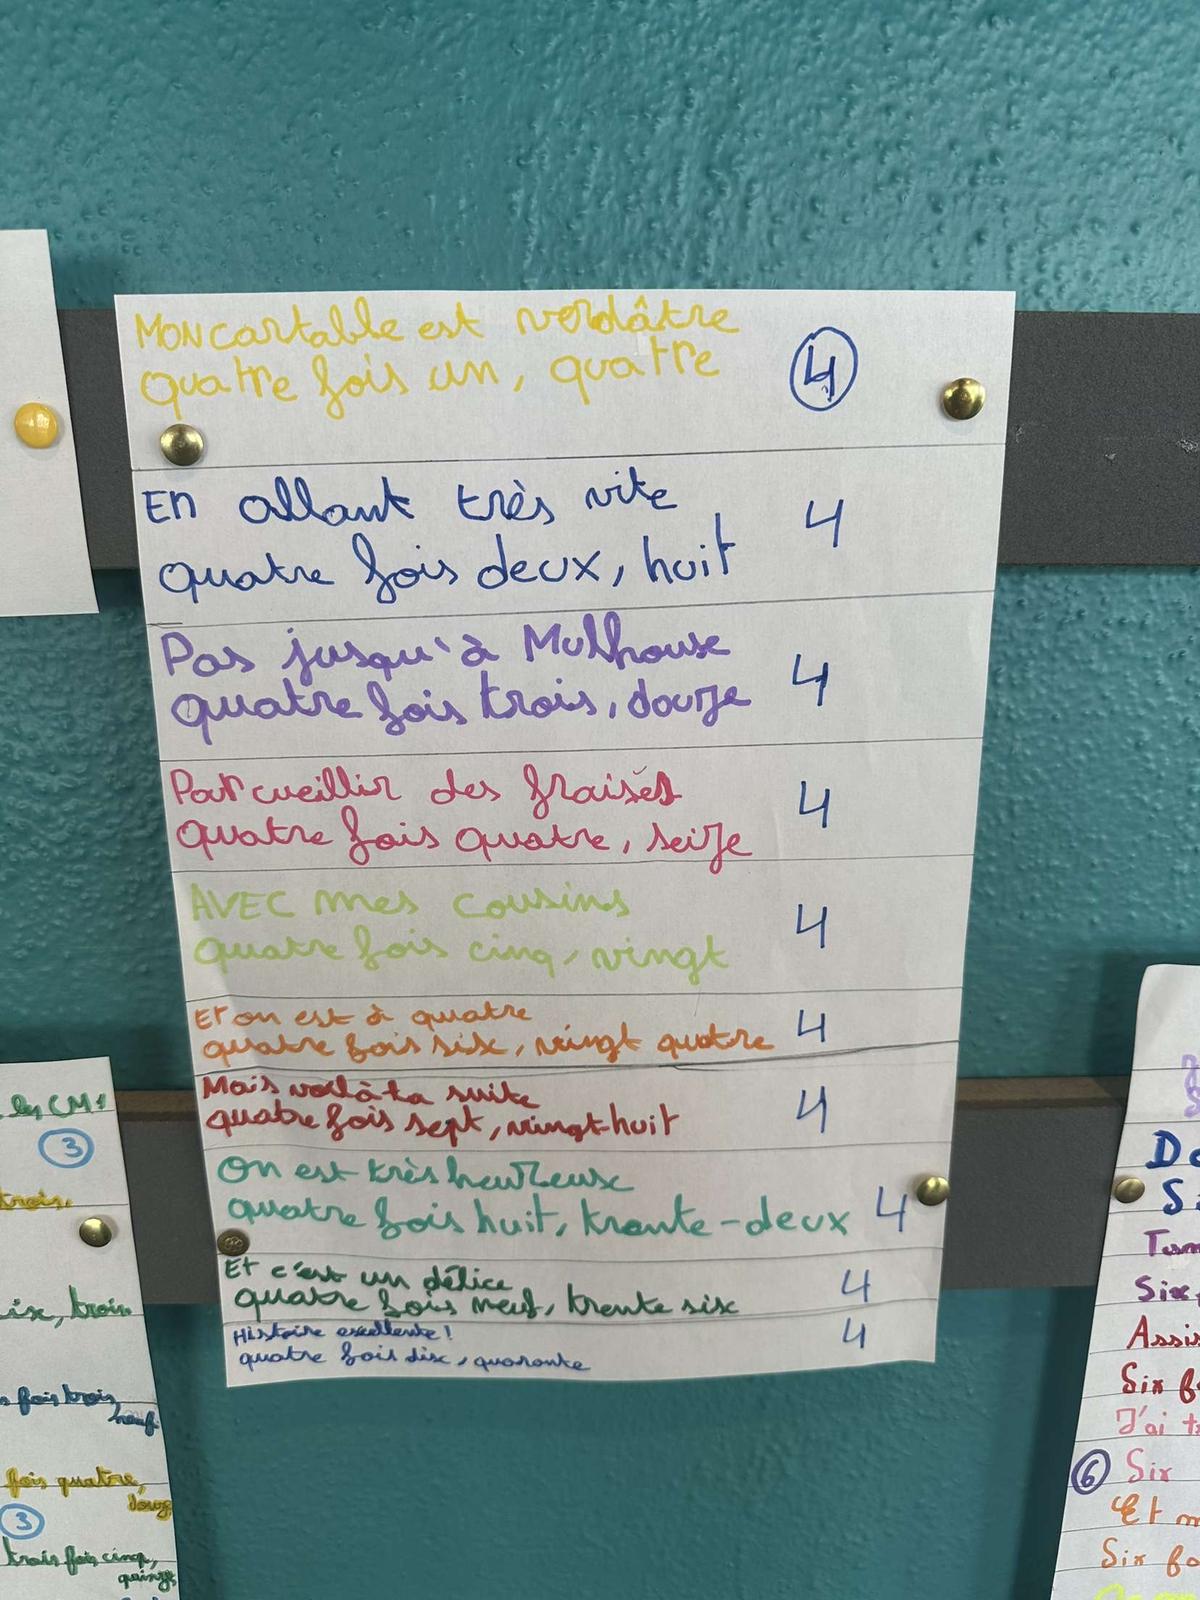 Mon cartable est verdâtre
quatre fois un, quatre
4
En allant très vite
quatre fois deux, huit
4
Pas jusqu'à Mulhouse
quatre fois trois, douze
4
Par cueillir des fraises
quatre fois quatre, seize
4
AVEC mes cousins
quatre fois cinq, vingt
4
Et on est à quatre
quatre fois six, vingt quatre
4
Mais voilà ta suite
quatre fois sept, vingt-huit
4
On est très heureux
quatre fois huit, trente-deux
4
Et c'est un délice
quatre fois neuf, trente six
4
Histoire excellente !
quatre fois dix, quarante
4
les CM1
3
trois
six, trois
fois trois
neuf
fois quatre,
douze
3
trois fois cinq,
quinze
Six
Assis
Six
J'ai
6 Six
Et
Six